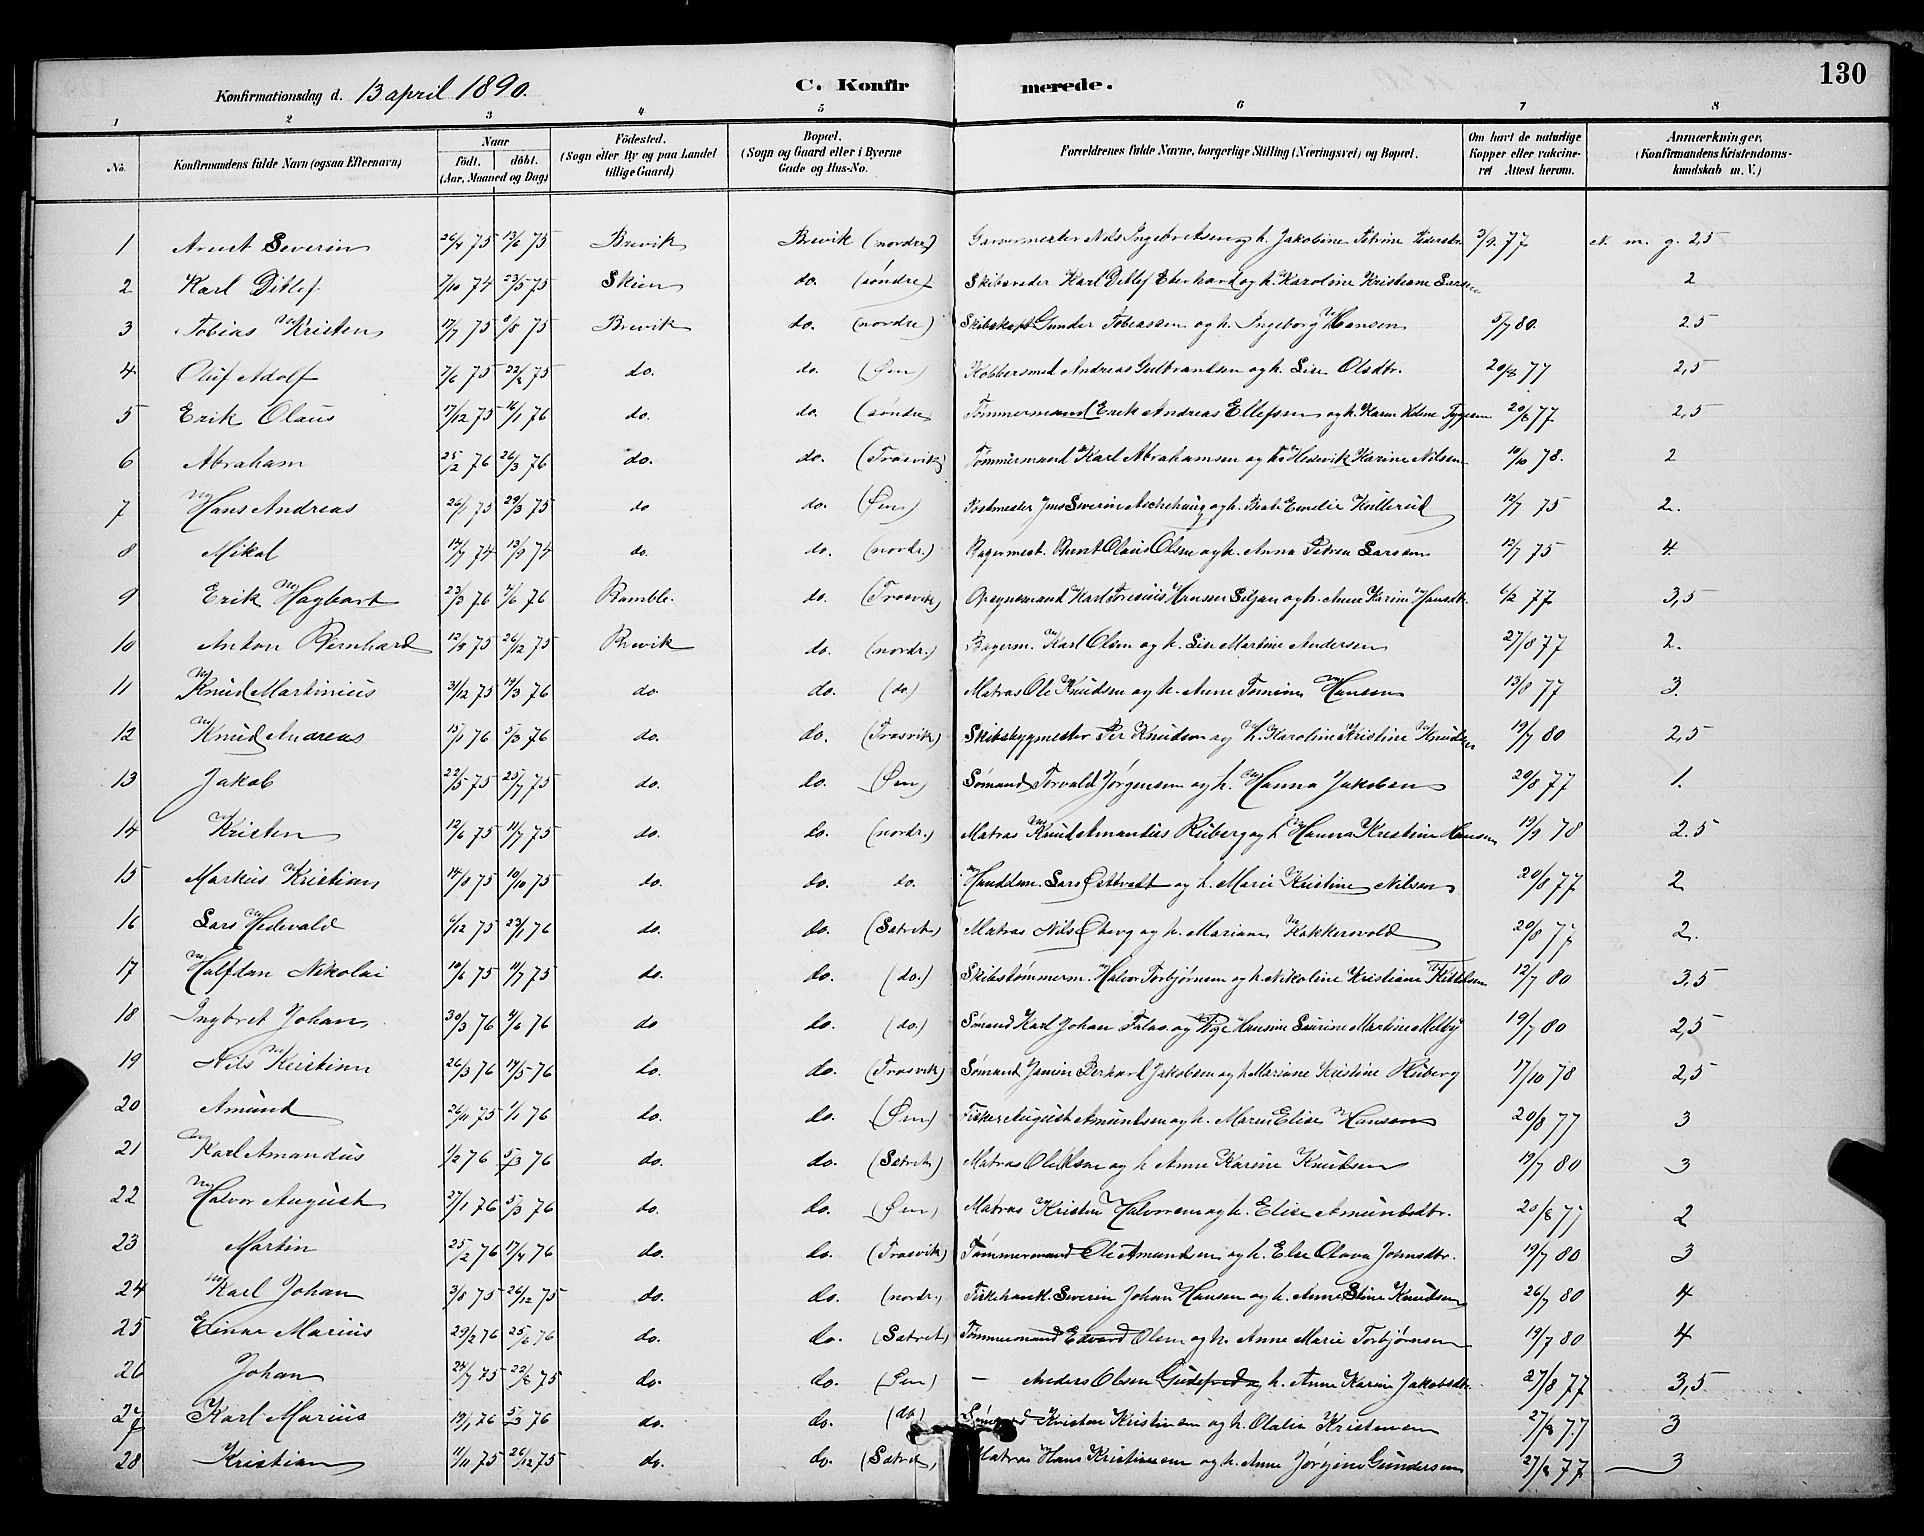 130
Konfirmationsdag d. 13 april 1890. C. Konfirmerede.
1 2 3 4 5 6 7 8
No. Konfirmandens fulde Navn (ogsaa Efternavn) Naar födt. döbt. (Aar, Maaned og Dag) Födested. (Sogn eller By og paa Landet tillige Gaard) Bopæl. (Sogn og Gaard eller i Byerne Gade og Hus-No. Forældrenes fulde Navne, borgerlige Stilling (Næringsvei) og Bopæl. Om havt de naturlige Kopper eller vakcineret Attest herom. Anmærkninger, (Konfirmandens Kristendomskundskab m. V.)
1 Arent Severin 26/4 75 13/6 75 Brevik Brevik (nordre) Garvermester Nils Ingebretsen og h. Jakobine Petrine Pedersdr. 3/9 77 N. m. g. 2,5
2 Karl Ditlef 7/10 74 23/5 75 Skien do. (söndre) Skibsreder Karl Ditlef Eberhard og h. Karoline Kristiane Larsen 2
3 Tobias Kristen 17/7 75 8/8 75 Brevik do. (nordre) Skibskapt Gunder Tobiassen og h. Ingeborg Hansen 5/7 80. 25
4 Oluf Adolf 7/6 75 22/8 75 do. do. (Øen) Kobbersmed Andreas Gulbrandsen og h. Lise Olsdtr. 20/8 77 2,5
5 Erik Olaus 17/12 75 16/1 76 do. do. (söndre) Tømmermand Erik Andreas Ellefsen og h. Karen Helene Tygesen 20/8 77 2,5
6 Abraham 25/2 76 26/3 76 do. do. (Trosvik) Tømmermand Karl Abrahamsen og h. Hedevik Karine Nilsen 10/10 78. 2
7 Hans Andreas 26/1 75 29/3 75 do do. (Øen) Postmester Jens Severin og h. Emelie Kullerud 12/7 75 2.
8 Mikal 14/7 74 13/9 74 do. do. (nordr.) Bagermest. Bernt Olaus Olsen og h. Anna Petrea Larsen 12/7 75 4
9 Erik Hagbart 23/3 76 4/6 76 Bamble. do. (Trosvik) Karl Siljan og h. Anne Karine Hansdtr. 6/2 77 3,5
10 Anton Bernhard 12/9 75 26/12 75 Brevik do. (nordr.) Bagerm. Karl Olsen og h. Lise Martine Andersen 27/8 77 2.
11 Knud Martinius 31/12 75 19/3 76 do. do. (do.) Matros Ole Knudsen og h. Anne Tomine Hansen 13/8 77 3.
12 Knud Andreas 15/1 76 5/3 76 do. do. (Trosvik) Skibsbygmester Per Knudsen og h. Karoline Kristine Knudsen 19/7 80 2,5
13 Jakob 22/5 75 25/7 75 do. do. (Øen) Sømand Torvald Jørgensen og h. Hanna Jakobsen 20/8 77 1.
14 Kristen 12/6 75 11/7 75 do. do. (nordr.) Matros Knud Amandus Ruberg og h. Hanna Kristine Hansen 19/9 78 2.5
15 Markus Kristian 14/8 75 10/10 75 do. do. do. Lars Østtvedt og h. Marie Kristine Nilsen 20/8 77 2
16 Lars Hedevald 6/12 75 23/1 76 do. do. (Sætret) Matros Nils Øberg og h. Mariane Kokkersvold 20/8 77 2.
17 Halfdan Nikolai 10/6 75 11/7 75 do. do. (do.) Skibstømmerm. Halvor Torbjørnsen og h. Nikoline Kristiane Kittelsen 12/7 80 3,5
18 Ingbret Johan 30/3 76 4/6 76 do do. (do.) Sømand Karl Johan Hansine Laurine Martine Melby 19/7 80 2,5
19 Nils Kristian 26/3 76 14/5 76 do. do. (Trosvik) Sømand Jakobsen og h. Mariane Kristine Ruberg 17/10 78 2,5
20 Amund 26/11 75 1/1 76 do. do. (Øen) Fisker August Amundsen og h. Maren Elise Hansen 20/8 77 3
21 Karl Amandus 1/2 76 5/3 76 do. do. (Sætret) Matros Ole Olsen og h Anne Karine Knudsen 19/7 80 3
22 Halvor August 27/1 76 5/3 76 do. do. (Øen) Matros Kristen Halvorsen og h. Elise Amundsdtr. 20/8 77 2
23 Martin 25/2 76 17/4 76 do. do. (Trosvik) Tømmermand Ole Amundsen og h. Else Olava Johnsdtr. 19/7 80 3
24 Karl Johan 3/8 75 26/12 75 do. do. (nordr.) Fiskehandl. Severin Johan Hansen og h. Anne Stine Knudsen 26/7 80 4
25 Einar Marius 29/2 76 25/6 76 do. do. (Sætret) Tømmermand Edvard Olsen og h. Anne Marie Torbjørnsen 19/7 80 4
26 Johan 24/7 75 22/8 75 do. do. (Øen) – Anders Olsen Gudefred og h. Anne Karine Jakobsdtr. 27/8 77 3,5
27 Karl Marius 19/1 76 5/3 76 do. do. (do.) Sømand Kristen Kristensen og h. Olalia Kristensen 27/8 77 3
28 Kristian 11/11 75 26/12 75 do. do. (Sætret) Matros Hans Kristiansen og h. Anne Jørgine Gundersen 27/8 77 3